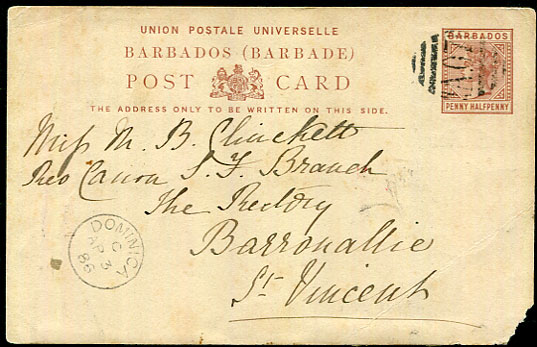 UNION POSTALE UNIVERSELLE
BARBADOS (BARBADE)
POST CARD
THE ADDRESS ONLY TO BE WRITTEN ON THIS SIDE.
BARBADOS
PENNY HALFPENNY
Miss M. B. Clinckett
Rev Canon S. F. Branch
The Rectory
Barronallie
St. Vincent
DOMINICA
C
AP 3
86